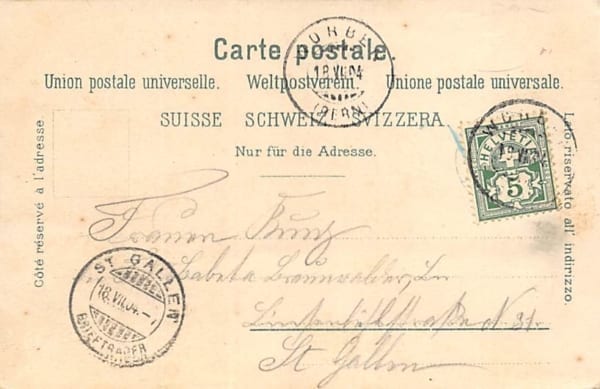 Carte postale.
Union postale universelle. Weltpostverein. Unione postale universale.
SUISSE SCHWEIZ SVIZZERA.
Nur für die Adresse.
Côté réservé à l'adresse.
Lato riservato all' indirizzo.
18.VII.04
(BERN)
HELVETIA
5
ST. GALLEN
18.VII.04.-7
BRIEFTRÄGER
Frauen Kunz
Babeta
N 31.
St Gallen